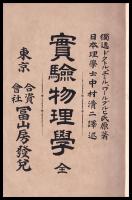 獨逸ドクトル、エ、ワールブルヒ氏原著
日本理學士中村清二譯述
實驗物理學 全
東京 合資會社 冨山房發兌